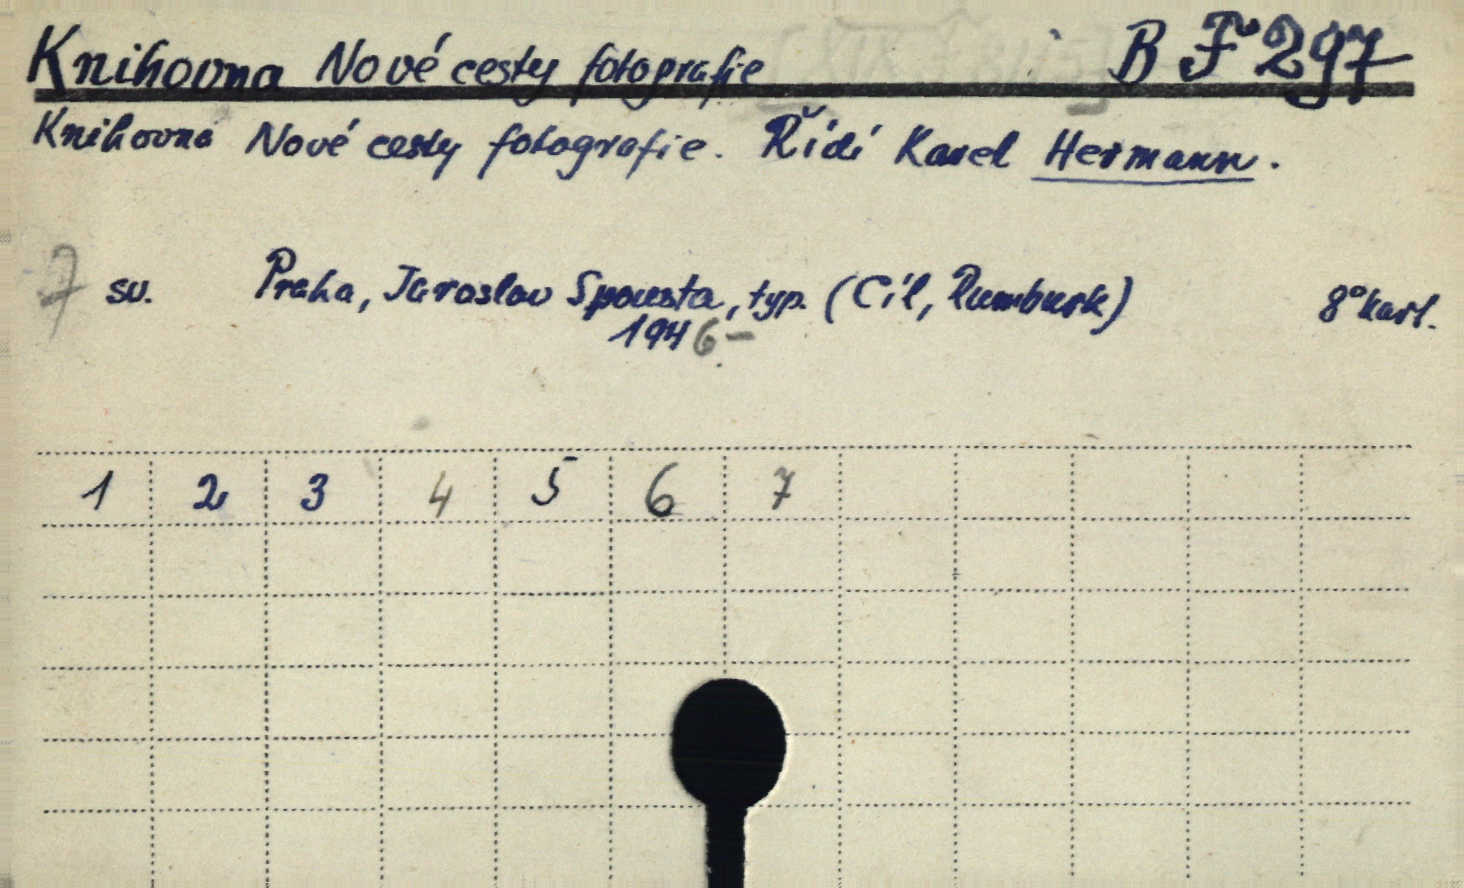 Knihovna Nové cesty fotografie B F 297
Knihovna Nové cesty fotografie. Řídí Karel Hermann.
7 sv. Praha, Jaroslav Spousta, typ. (Cíl, Rumburk) 8° kart.
1946-
1 2 3 4 5 6 7